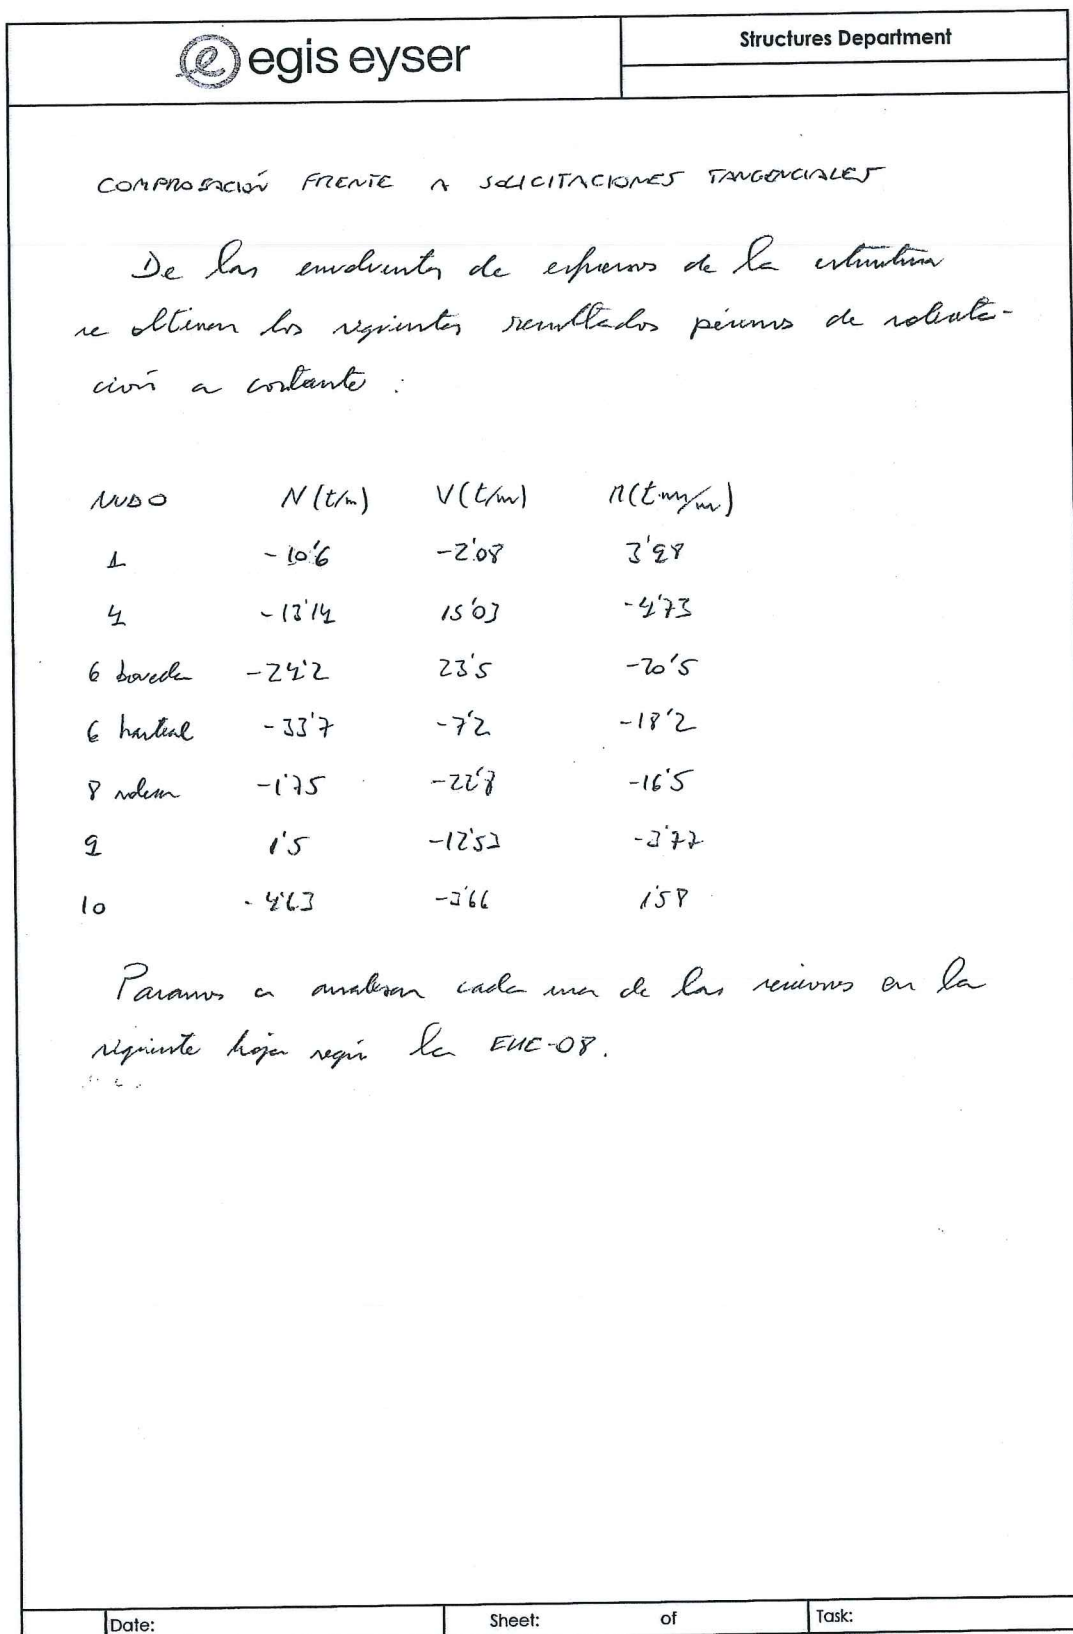 egis eyser
Structures Department
COMPROBACIÓN FRENTE A SOLICITACIONES TANGENCIALES
De las envolventes de esfuerzos de la estructura
se obtienen los siguientes resultados pésimos de solicita-
ción a cortante :
NUDO N (t/m) V (t/m) M (t·m/m)
1 -10'6 -2'08 3'98
4 -13'14 15'03 -4'73
6 boveda -24'2 23'5 -20'5
6 hastial -33'7 -7'2 -18'2
8 solera -1'75 -22'8 -16'5
9 1'5 -12'53 -3'77
10 -4'63 -3'66 1'58
Pasamos a analizar cada una de las secciones en la
siguiente hoja según la EHE-08.
Date: Sheet: of Task: